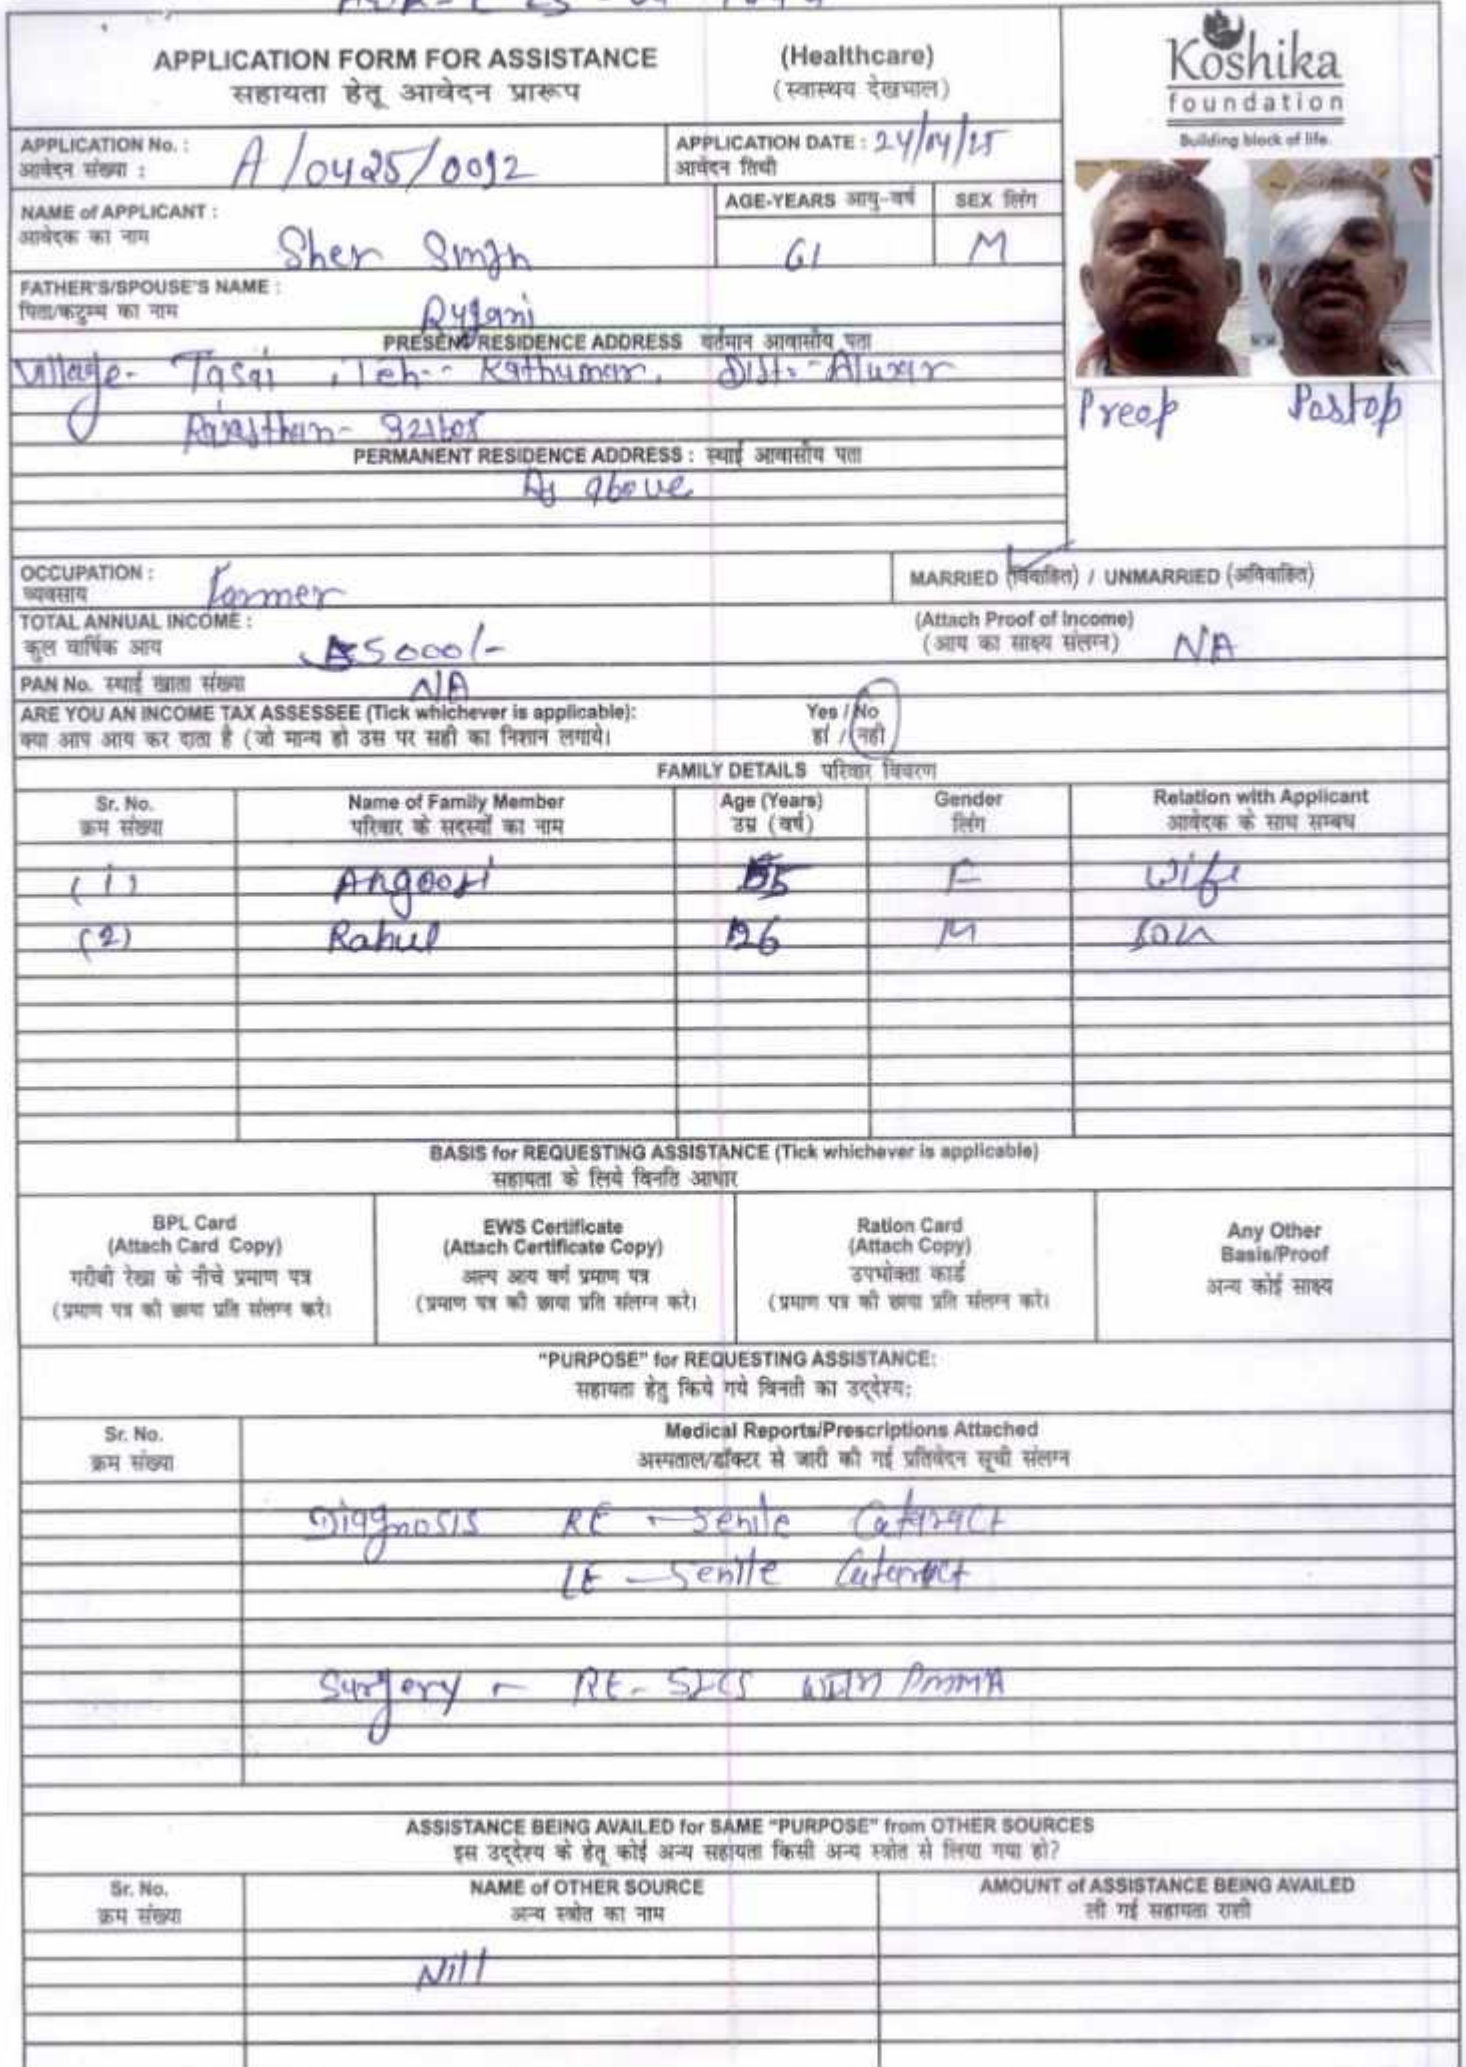 APPLICATION FORM FOR ASSISTANCE
सहायता हेतू आवेदन प्रारूप
(Healthcare)
(स्वास्थय देखभाल)
Koshika
foundation
Building block of life.
APPLICATION No. : A/0425/0092
आवेदन संख्या :
APPLICATION DATE : 24/04/25
आवेदन तिथी
NAME of APPLICANT :
आवेदक का नाम
Sher Singh
AGE-YEARS आयु-वर्ष
61
SEX लिंग
M
FATHER'S/SPOUSE'S NAME :
पिता/कटुम्ब का नाम
PRESENT RESIDENCE ADDRESS वर्तमान आवासीय पता
Village- Tasai , Teh-- Kathumar, Distt- Alwar
Rajasthan- 321605
Preop Postop
PERMANENT RESIDENCE ADDRESS : स्थाई आवासीय पता
As above
OCCUPATION :
व्यवसाय
Farmer
MARRIED (विवाहित) / UNMARRIED (अविवाहित)
TOTAL ANNUAL INCOME :
कुल वार्षिक आय
5000/-
(Attach Proof of Income)
(आय का साक्ष्य संलग्न)
NA
PAN No. स्थाई खाता संख्या NA
ARE YOU AN INCOME TAX ASSESSEE (Tick whichever is applicable): Yes / No
क्या आप आय कर दाता है (जो मान्य हो उस पर सही का निशान लगाये। हां / नही
FAMILY DETAILS परिवार विवरण
Sr. No. Name of Family Member Age (Years) Gender Relation with Applicant
क्रम संख्या परिवार के सदस्यों का नाम उम्र (वर्ष) लिंग आवेदक के साथ सम्बध
(1) Angoori 55 F Wife
(2) Rahul 26 M Son
BASIS for REQUESTING ASSISTANCE (Tick whichever is applicable)
सहायता के लिये विनति आधार
BPL Card
(Attach Card Copy)
गरीबी रेखा के नीचे प्रमाण पत्र
(प्रमाण पत्र की छाया प्रति संलग्न करे।
EWS Certificate
(Attach Certificate Copy)
अल्प आय वर्ग प्रमाण पत्र
(प्रमाण पत्र की छाया प्रति संलग्न करे।
Ration Card
(Attach Copy)
उपभोक्ता कार्ड
(प्रमाण पत्र की छाया प्रति संलग्न करे।
Any Other
Basis/Proof
अन्य कोई साक्ष्य
"PURPOSE" for REQUESTING ASSISTANCE:
सहायता हेतु किये गये विनती का उद्देश्य:
Sr. No. Medical Reports/Prescriptions Attached
क्रम संख्या अस्पताल/डॉक्टर से जारी की गई प्रतिवेदन सूची संलग्न
Diagnosis RE - Senile Cataract
LE - Senile Cataract
Surgery - RE- SICS with PMMA
ASSISTANCE BEING AVAILED for SAME "PURPOSE" from OTHER SOURCES
इस उद्देश्य के हेतू कोई अन्य सहायता किसी अन्य स्त्रोत से लिया गया हो?
Sr. No. NAME of OTHER SOURCE AMOUNT of ASSISTANCE BEING AVAILED
क्रम संख्या अन्य स्त्रोत का नाम ली गई सहायता राशी
Nill